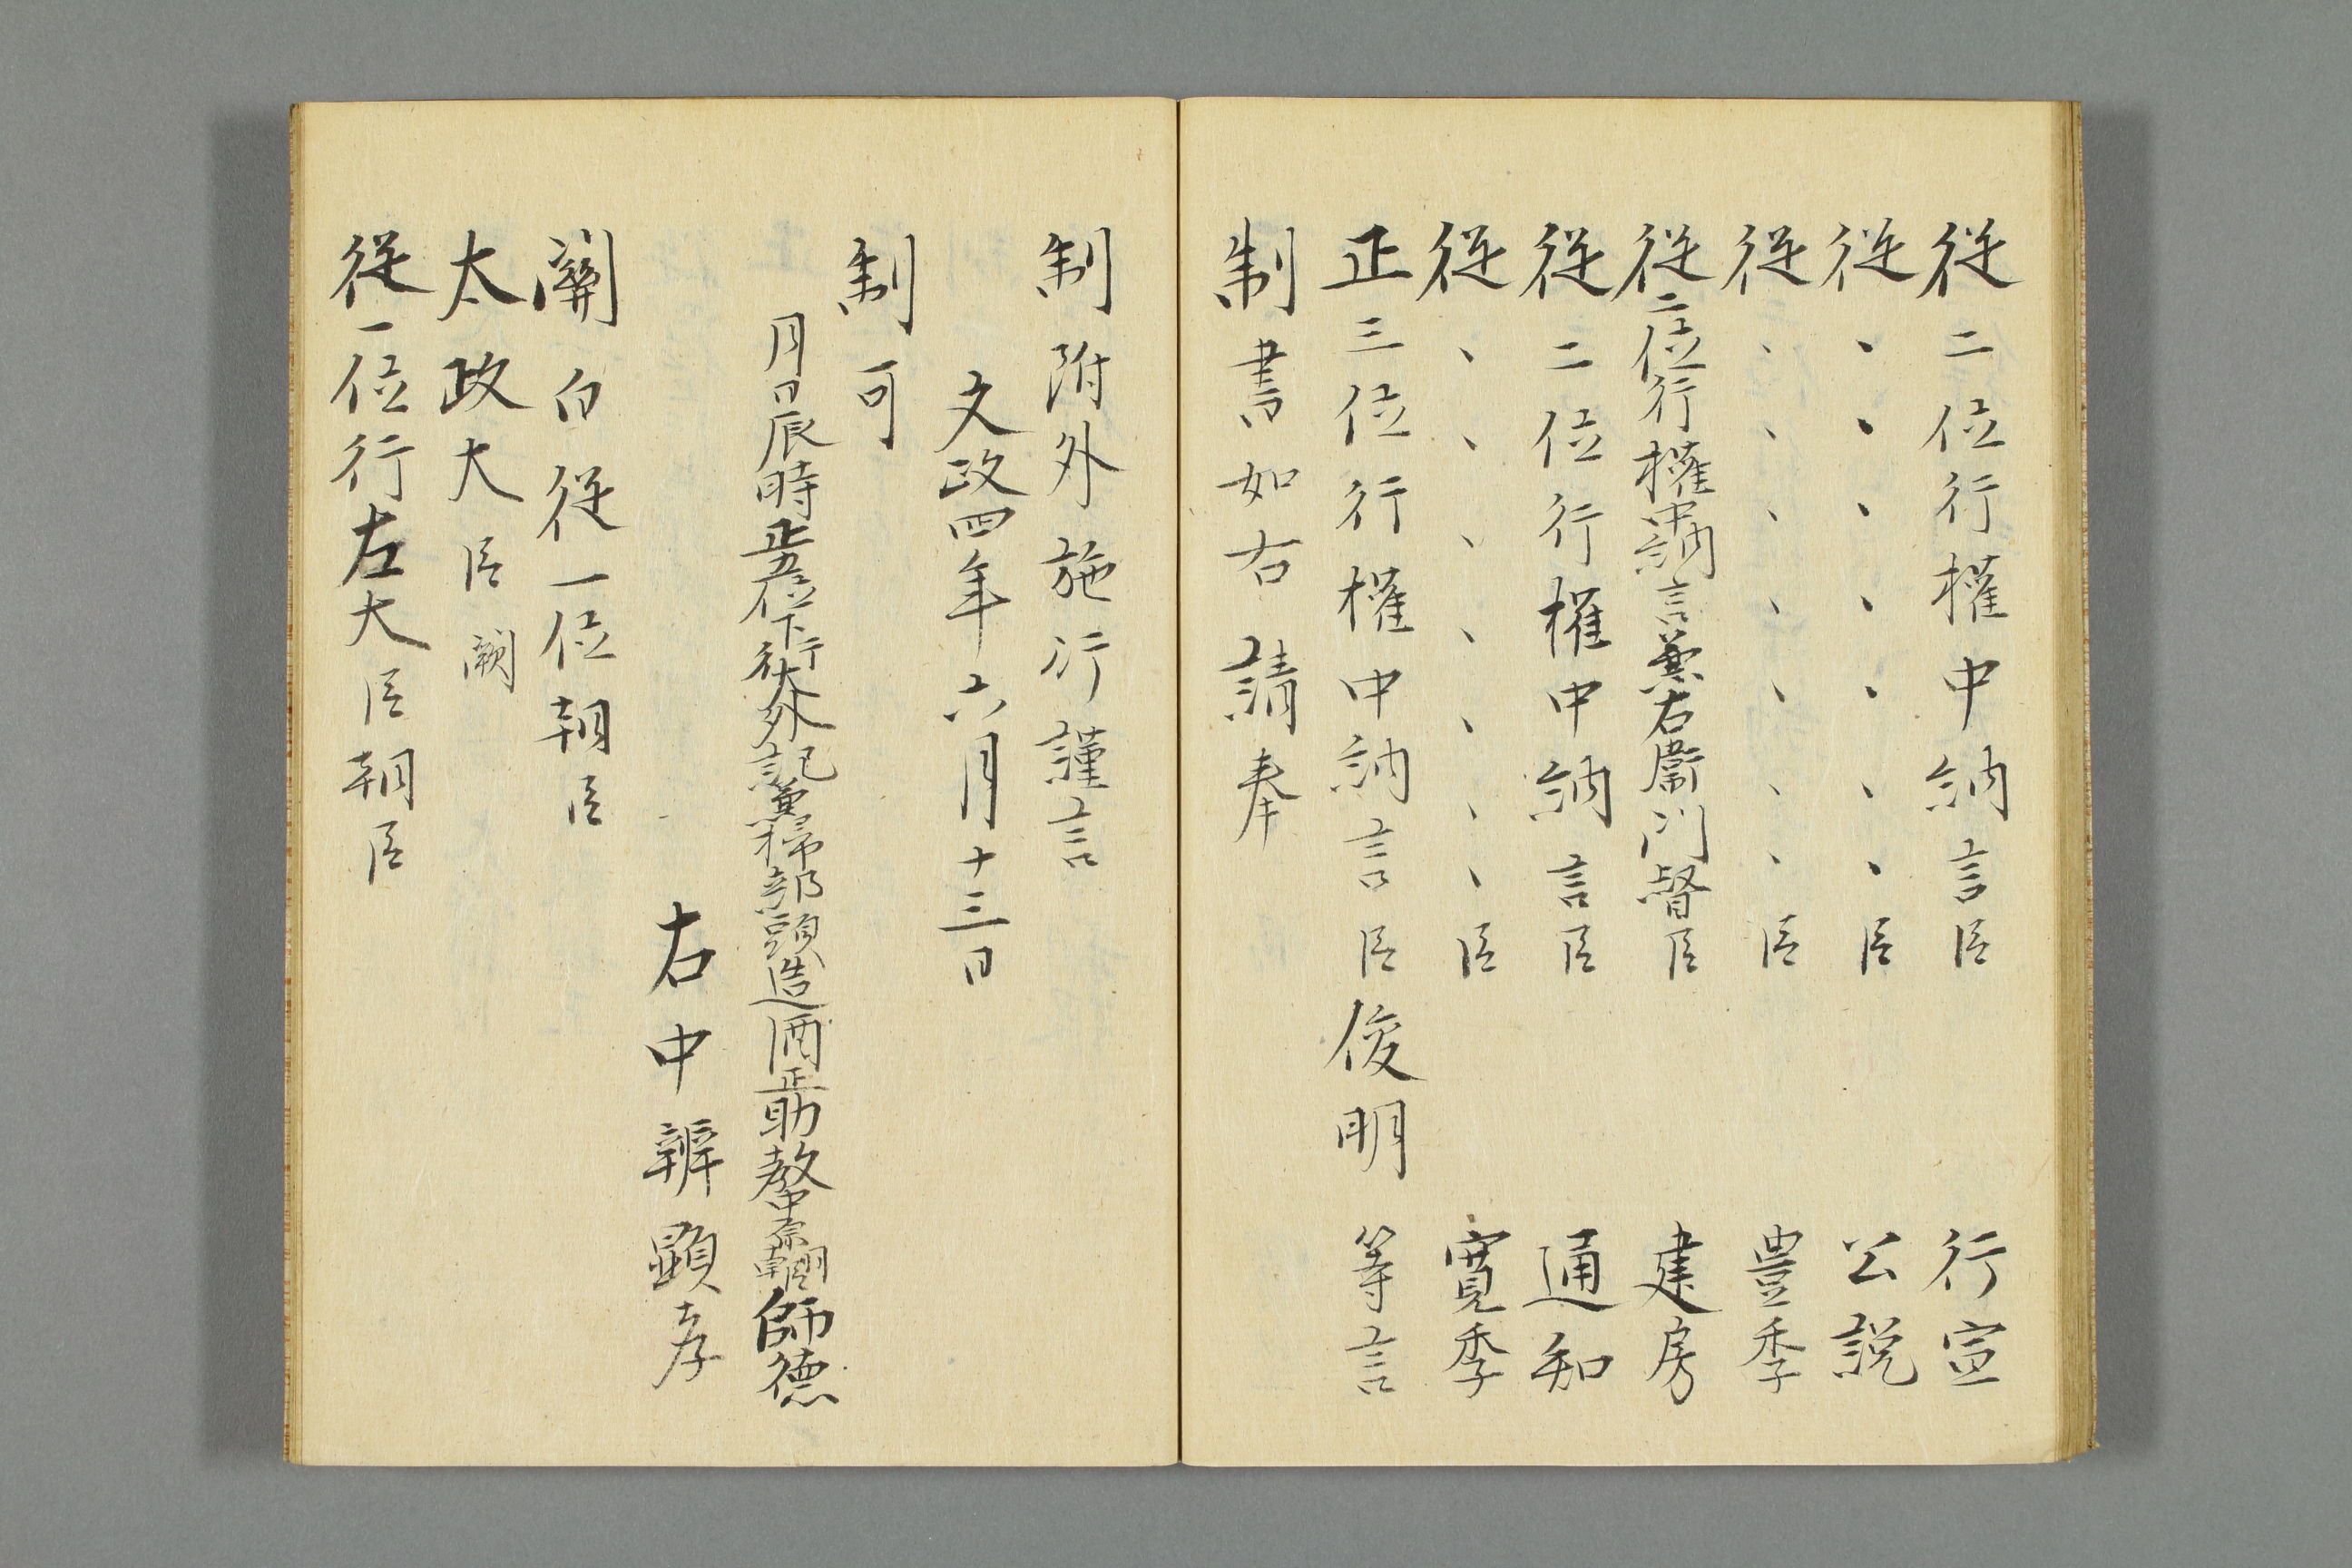 従二位行權中納言臣 行宣
従、、、、、、、臣 公説
従、、、、、、、臣 豊季
従二位行權中納言兼右衛門督臣 建房
従二位行權中納言臣 通知
従、、、、、、、臣 寛季
正三位行權中納言臣俊明 等言
制書如右請奉
制附外施行謹言
文政四年六月十三日
制可
月日辰時正五位下行大外記兼掃部頭造酒正助教中原朝臣師徳
右中辨顕孝
關白従一位朝臣
太政大臣闕
従一位行左大臣朝臣